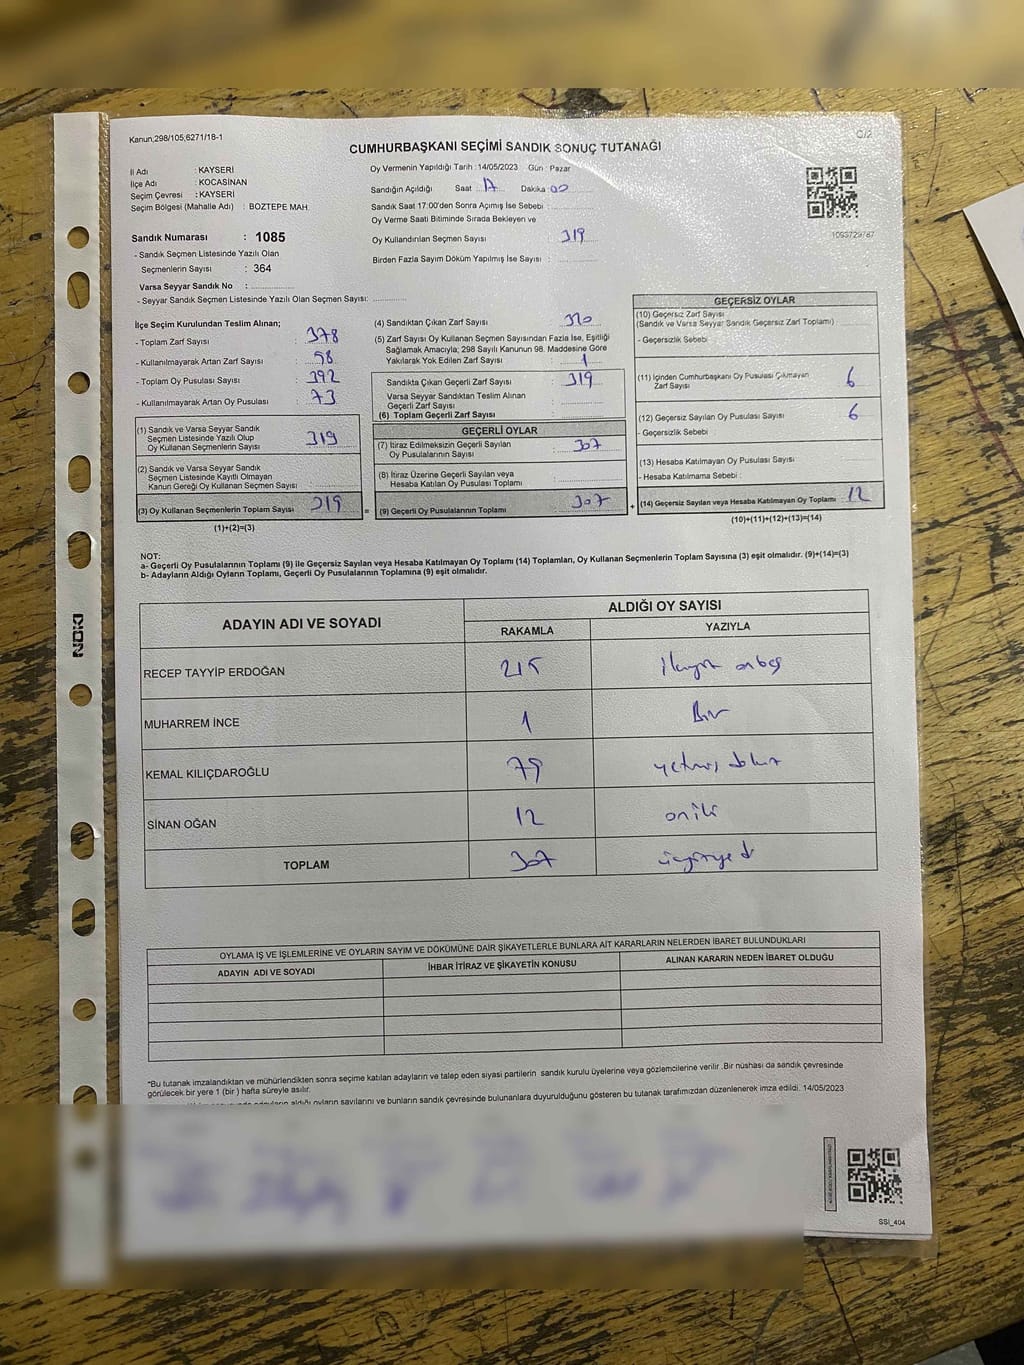 Kanun,298/105,6271/18-1
C/2
CUMHURBAŞKANI SEÇİMİ SANDIK SONUÇ TUTANAĞI
İl Adı : KAYSERİ
İlçe Adı : KOCASİNAN
Seçim Çevresi : KAYSERİ
Seçim Bölgesi (Mahalle Adı) : BOZTEPE MAH.
Oy Vermenin Yapıldığı Tarih : 14/05/2023 Gün : Pazar
Sandığın Açıldığı Saat 17 Dakika 00
Sandık Saat 17:00'den Sonra Açımış İse Sebebi :
Oy Verme Saati Bitiminde Sırada Bekleyen ve
Oy Kullandırılan Seçmen Sayısı 319
Birden Fazla Sayım Döküm Yapılmış İse Sayısı :
1093729787
Sandık Numarası : 1085
- Sandık Seçmen Listesinde Yazılı Olan
Seçmenlerin Sayısı : 364
Varsa Seyyar Sandık No :
- Seyyar Sandık Seçmen Listesinde Yazılı Olan Seçmen Sayısı:
İlçe Seçim Kurulundan Teslim Alınan;
- Toplam Zarf Sayısı : 378
- Kullanılmayarak Artan Zarf Sayısı : 58
- Toplam Oy Pusulası Sayısı : 392
- Kullanılmayarak Artan Oy Pusulası : 73
(1) Sandık ve Varsa Seyyar Sandık
Seçmen Listesinde Yazılı Olup
Oy Kullanan Seçmenlerin Sayısı : 319
(2) Sandık ve Varsa Seyyar Sandık
Seçmen Listesinde Kayıtlı Olmayan
Kanun Gereği Oy Kullanan Seçmen Sayısı :
(3) Oy Kullanan Seçmenlerin Toplam Sayısı 319
(1)+(2)=(3)
=
(4) Sandıktan Çıkan Zarf Sayısı : 320
(5) Zarf Sayısı Oy Kullanan Seçmen Sayısından Fazla İse, Eşitliği
Sağlamak Amacıyla; 298 Sayılı Kanunun 98. Maddesine Göre
Yakılarak Yok Edilen Zarf Sayısı : 1
Sandıkta Çıkan Geçerli Zarf Sayısı : 319
Varsa Seyyar Sandıktan Teslim Alınan
Geçerli Zarf Sayısı :
(6) Toplam Geçerli Zarf Sayısı :
GEÇERLİ OYLAR
(7) İtiraz Edilmeksizin Geçerli Sayılan
Oy Pusulalarının Sayısı : 307
(8) İtiraz Üzerine Geçerli Sayılan veya
Hesaba Katılan Oy Pusulası Toplamı :
(9) Geçerli Oy Pusulalarının Toplamı : 307
+
GEÇERSİZ OYLAR
(10) Geçersiz Zarf Sayısı
(Sandık ve Varsa Seyyar Sandık Geçersiz Zarf Toplamı)
- Geçersizlik Sebebi :
(11) İçinden Cumhurbaşkanı Oy Pusulası Çıkmayan
Zarf Sayısı : 6
(12) Geçersiz Sayılan Oy Pusulası Sayısı : 6
- Geçersizlik Sebebi
(13) Hesaba Katılmayan Oy Pusulası Sayısı :
- Hesaba Katılmama Sebebi :
(14) Geçersiz Sayılan veya Hesaba Katılmayan Oy Toplamı 12
(10)+(11)+(12)+(13)=(14)
NOT:
a- Geçerli Oy Pusulalarının Toplamı (9) ile Geçersiz Sayılan veya Hesaba Katılmayan Oy Toplamı (14) Toplamları, Oy Kullanan Seçmenlerin Toplam Sayısına (3) eşit olmalıdır. (9)+(14)=(3)
b- Adayların Aldığı Oyların Toplamı, Geçerli Oy Pusulalarının Toplamına (9) eşit olmalıdır.
NOKI
ADAYIN ADI VE SOYADI
ALDIĞI OY SAYISI
RAKAMLA YAZIYLA
RECEP TAYYİP ERDOĞAN 215 ikiyüz onbeş
MUHARREM İNCE 1 Bir
KEMAL KILIÇDAROĞLU 79 yetmiş dokuz
SİNAN OĞAN 12 oniki
TOPLAM 307 üçyüzyedi
OYLAMA İŞ VE İŞLEMLERİNE VE OYLARIN SAYIM VE DÖKÜMÜNE DAİR ŞİKAYETLERLE BUNLARA AİT KARARLARIN NELERDEN İBARET BULUNDUKLARI
ADAYIN ADI VE SOYADI İHBAR İTİRAZ VE ŞİKAYETİN KONUSU ALINAN KARARIN NEDEN İBARET OLDUĞU
*Bu tutanak imzalandıktan ve mühürlendikten sonra seçime katılan adayların ve talep eden siyasi partilerin sandık kurulu üyelerine veya gözlemcilerine verilir .Bir nüshası da sandık çevresinde
görülecek bir yere 1 (bir ) hafta süreyle asılır.
adayların aldığı oyların sayılarını ve bunların sandık çevresinde bulunanlara duyurulduğunu gösteren bu tutanak tarafımızdan düzenlenerek imza edildi. 14/05/2023
SSİ_404